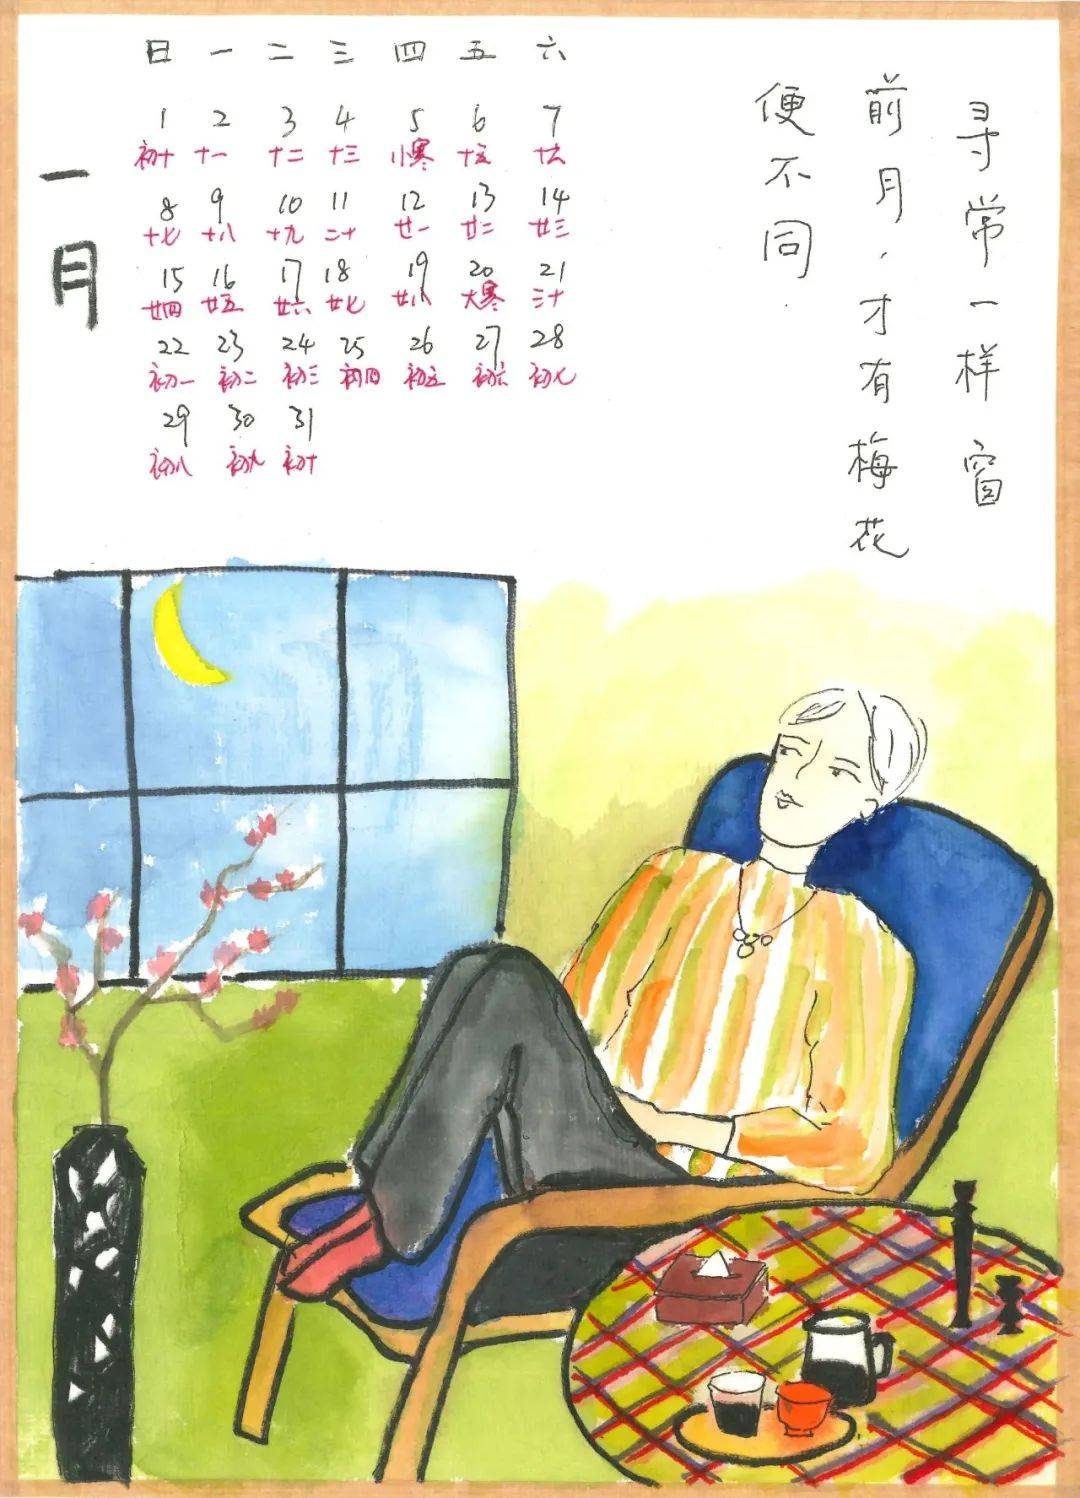 一月
日 一 二 三 四 五 六
1 2 3 4 5 6 7
初十 十一 十二 十三 小寒 十五 十六
8 9 10 11 12 13 14
十七 十八 十九 二十 廿一 廿二 廿三
15 16 17 18 19 20 21
廿四 廿五 廿六 廿七 廿八 大寒 三十
22 23 24 25 26 27 28
初一 初二 初三 初四 初五 初六 初七
29 30 31
初八 初九 初十
寻常一样窗
前月，才有梅花
便不同